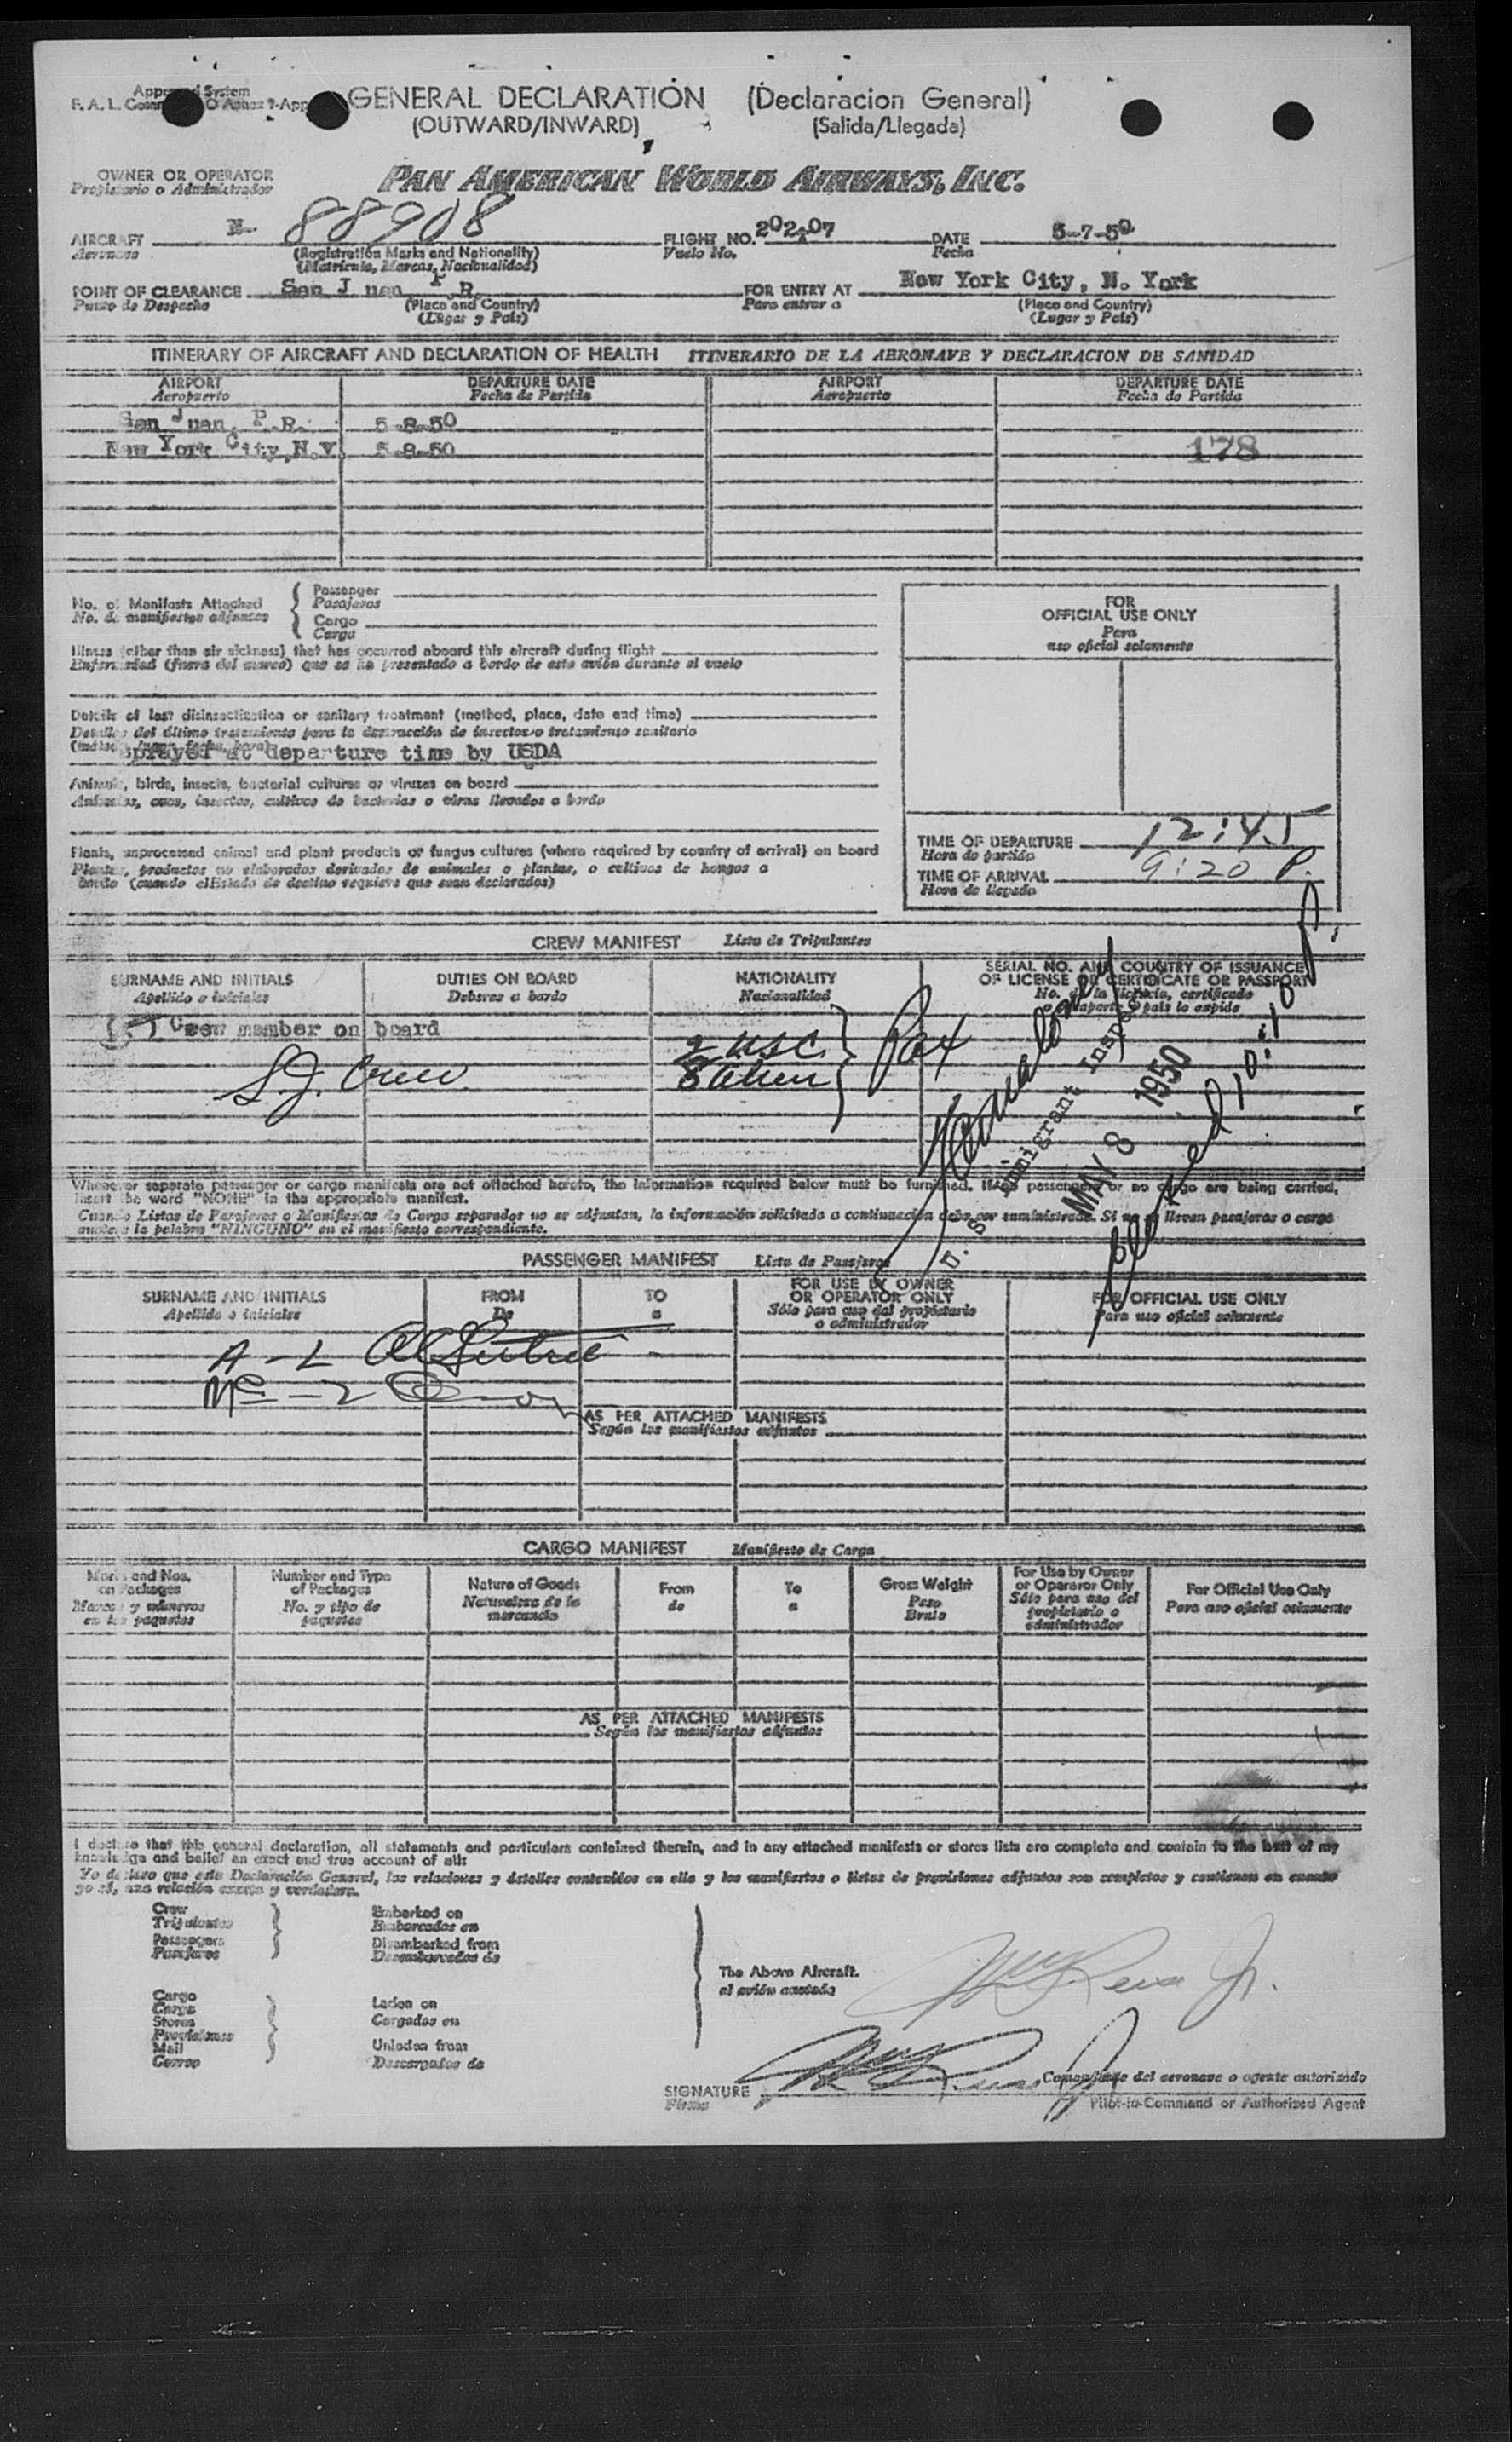 Approved System
F. A. L.
GENERAL DECLARATION (Declaracion General)
(OUTWARD/INWARD) (Salida/Llegada)
OWNER OR OPERATOR
Propietario o Administrador
PAN AMERICAN WORLD AIRWAYS, INC.
AIRCRAFT N- 88908 FLIGHT NO. 202-07 DATE 5-7-50
Aeronave (Registration Marks and Nationality) Vuelo No. Fecha
(Matricula, Marcas, Nacionalidad)
POINT OF CLEARANCE San Juan P.R. FOR ENTRY AT New York City, N. York
Punto de Despacho (Place and Country) Para entrar a (Place and Country)
(Lugar y Pais) (Lugar y Pais)
ITINERARY OF AIRCRAFT AND DECLARATION OF HEALTH ITINERARIO DE LA AERONAVE Y DECLARACION DE SANIDAD
AIRPORT DEPARTURE DATE AIRPORT DEPARTURE DATE
Aeropuerto Fecha de Partida Aeropuerto Fecha de Partida
San Juan, P.R. 5-8-50
New York City, N.Y. 5-8-50 178
No. of Manifests Attached { Passenger
No. de manifiestos adjuntos Pasajeros
Cargo
Carga
FOR
OFFICIAL USE ONLY
Para
uso oficial solamente
Illness (other than air sickness) that has occurred aboard this aircraft during flight
Enfermedad (fuera del mareo) que se ha presentado a bordo de este avión durante el vuelo
Details of last disinsectization or sanitary treatment (method, place, date and time)
Detalles del último tratamiento para la destrucción de insectos o tratamiento sanitario
sprayed at departure time by USDA
Animals, birds, insects, bacterial cultures or viruses on board
Animales, aves, insectos, cultivos de bacterias o virus llevados a bordo
Plants, unprocessed animal and plant products or fungus cultures (where required by country of arrival) on board
Plantas, productos no elaborados derivados de animales o plantas, o cultivos de hongos a
bordo (cuando el Estado de destino requiere que sean declarados)
TIME OF DEPARTURE 12:45
Hora de partida
TIME OF ARRIVAL 9:20 P.
Hora de llegada
CREW MANIFEST Lista de Tripulantes
SURNAME AND INITIALS DUTIES ON BOARD NATIONALITY SERIAL NO. AND COUNTRY OF ISSUANCE
Apellido e iniciales Deberes a bordo Nacionalidad OF LICENSE OR CERTIFICATE OR PASSPORT
No. de la licencia, certificado
o pasaporte y país lo expide
(5) Crew member on board
S.J. Crew
2 USC } Pax
8 Alien
U. S. Immigrant Inspector
MAY 8 1950
Cleared 10:10 P.
Whenever separate passenger or cargo manifests are not attached hereto, the information required below must be furnished. If no passengers or no cargo are being carried,
insert the word "NONE" in the appropriate manifest.
Cuando Listas de Pasajeros o Manifiestos de Carga separados no se adjuntan, la información solicitada a continuación debe ser suministrada. Si no se llevan pasajeros o carga
anótese la palabra "NINGUNO" en el manifiesto correspondiente.
PASSENGER MANIFEST Lista de Pasajeros
SURNAME AND INITIALS FROM TO FOR USE BY OWNER FOR OFFICIAL USE ONLY
Apellido e iniciales De a OR OPERATOR ONLY Para uso oficial solamente
Sólo para uso del propietario
o administrador
AS PER ATTACHED MANIFESTS
Según los manifiestos adjuntos
CARGO MANIFEST Manifiesto de Carga
Marks and Nos. Number and Type Nature of Goods From To Gross Weight For Use by Owner For Official Use Only
on Packages of Packages Naturaleza de la de a Peso or Operator Only Para uso oficial solamente
Marcas y números No. y tipo de mercancía Bruto Sólo para uso del
en los paquetes paquetes propietario o
administrador
AS PER ATTACHED MANIFESTS
Según los manifiestos adjuntos
I declare that this general declaration, all statements and particulars contained therein, and in any attached manifests or stores lists are complete and contain to the best of my
knowledge and belief an exact and true account of all:
Yo declaro que esta Declaración General, las relaciones y detalles contenidos en ella y los manifiestos o listas de provisiones adjuntos son completos y contienen en cuanto
yo sé, una relación exacta y verdadera.
Crew Embarked on
Tripulantes Embarcados en
Passengers Disembarked from
Pasajeros Desembarcados de
The Above Aircraft.
el avión anotado
Cargo
Carga Laden on
Stores Cargados en
Provisiones
Mail Unladen from
Correo Descargados de
Comandante del aeronave o agente autorizado
SIGNATURE
Firma Pilot-in-Command or Authorized Agent